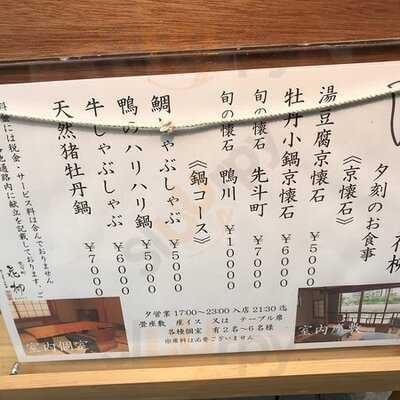 夕刻のお食事
《京懐石》
湯豆腐京懐石 ￥5000
牡丹小鍋京懐石 ￥6000
旬の懐石 先斗町 ￥7000
旬の懐石 鴨川 ￥10000
《鍋コース》
鯛しゃぶしゃぶ ￥5000
鴨のハリハリ鍋 ￥5000
牛しゃぶしゃぶ ￥7000
天然猪牡丹鍋 ￥7000
料金には税金・サービス料は含んでおりません
通路内に献立を記載しております。
夕営業 17:00～23:00 入店 21:30 迄
畳座敷 座イス 又は テーブル席
各種個室 有 2名～6名様
席料は必要ございません
室内個室
室内